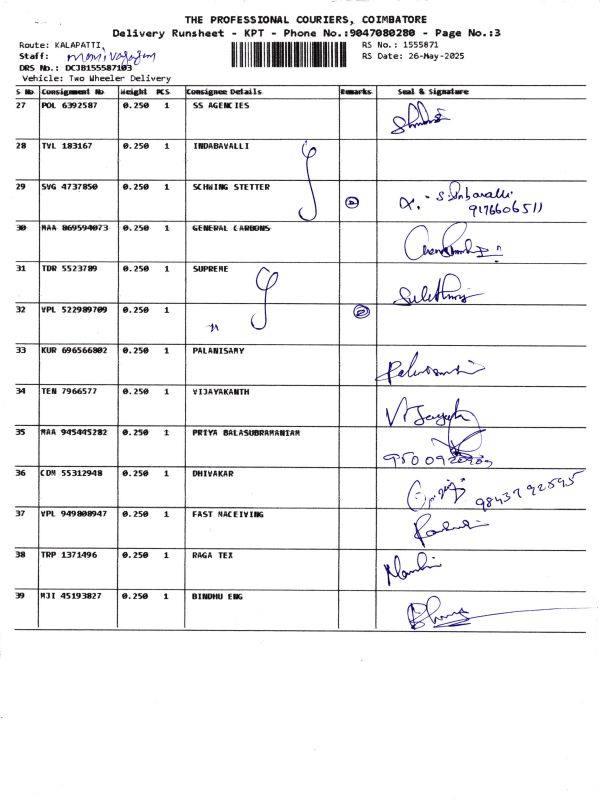 THE PROFESSIONAL COURIERS, COIMBATORE
Delivery Runsheet - KPT - Phone No.:9047080280 - Page No.:3
Route: KALAPATTI RS No.: 1555871
Staff: RS Date: 26-May-2025
DRS No.: DCJB155587103
Vehicle: Two Wheeler Delivery
S No Consignment No Weight PCS Consignee Details Remarks Seal & Signature
27 POL 6392587 0.250 1 SS AGENCIES
28 TVL 183167 0.250 1 INDABAVALLI
29 SVG 4737850 0.250 1 SCHWING STETTER
9176606511
30 MAA 869594073 0.250 1 GENERAL CARBONS
31 TDR 5523789 0.250 1 SUPREME
32 VPL 522989709 0.250 1
33 KUR 696566802 0.250 1 PALANISAMY
34 TEN 7966577 0.250 1 VIJAYAKANTH
35 MAA 945445282 0.250 1 PRIYA BALASUBRAMANIAM
36 COM 55312948 0.250 1 DHIVAKAR
9843792595
37 VPL 949808947 0.250 1 FAST NACEIVING
38 TRP 1371496 0.250 1 RAGA TEX
39 MJI 45193827 0.250 1 BINDHU ENG